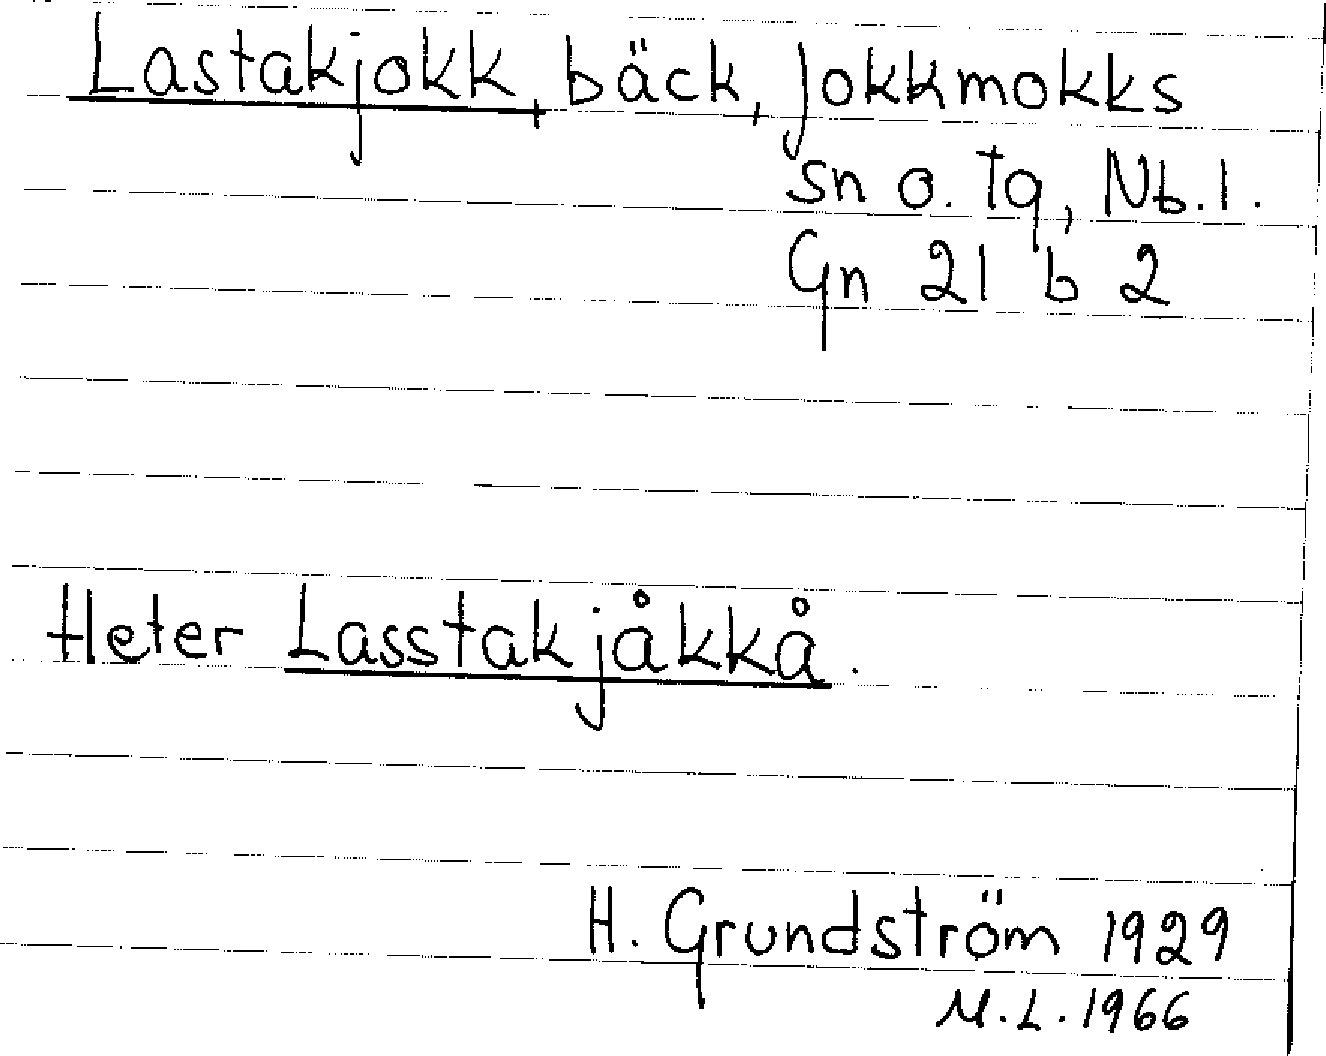 Lastakjokk, bäck, Jokkmokks
sn o. tg, Nb. l.
Gn 21 b 2
Heter Lasstakjåkkå.
H. Grundström 1929
M.L. 1966